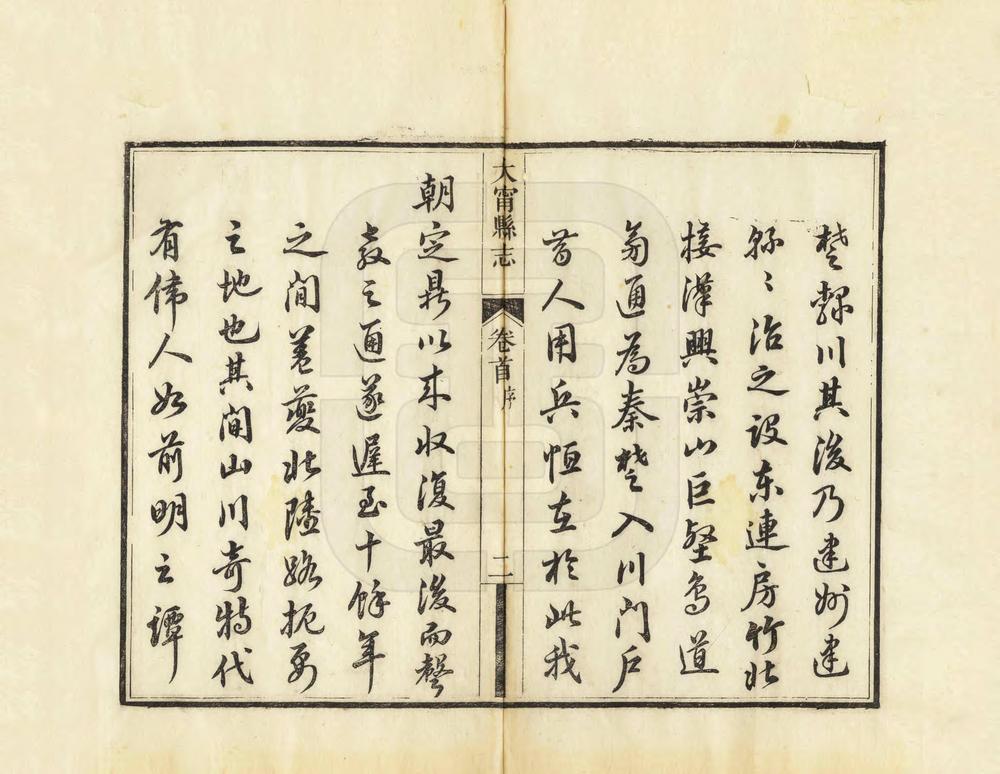 楚隸川其後乃建州建
縣縣治之設東連房竹北
接漢興崇山巨壑鳥道
旁通為秦楚入川門戶
昔人用兵恒在於此我
大甯縣志
卷首
序
二
朝定鼎以來收復最後而聲
教之通遂遲至十餘年
之間蓋夔北陸路扼要
之地也其間山川奇特代
有偉人如前明之譚